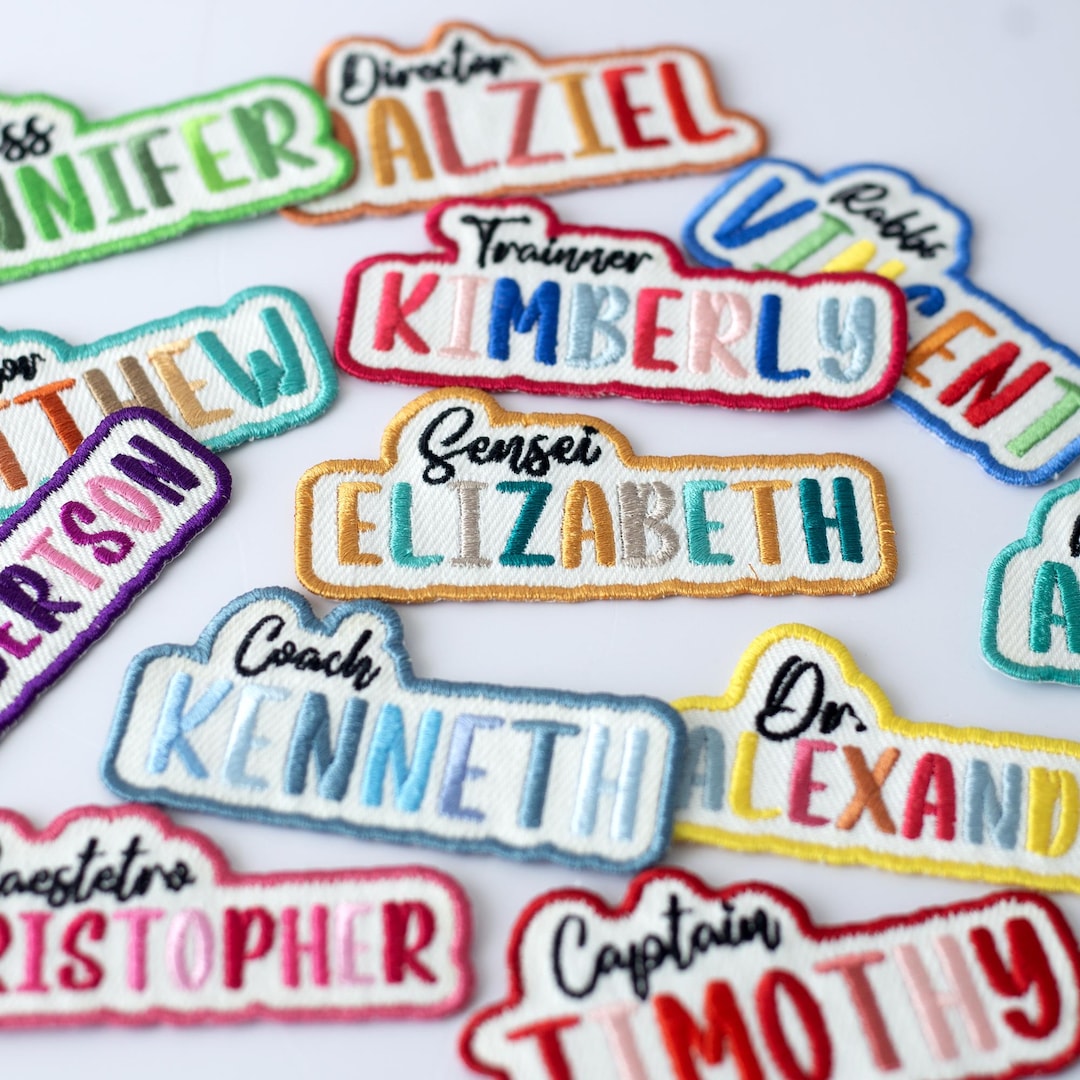 Director
ALZIEL
ss
NNIFER
Rabbi
VINCENT
Trainner
KIMBERLY
TTHEW
Sensei
ELIZABETH
BERTSON
Coach
KENNETH
Dr.
ALEXAND
aestetro
RISTOPHER
Captain
TIMOTHY